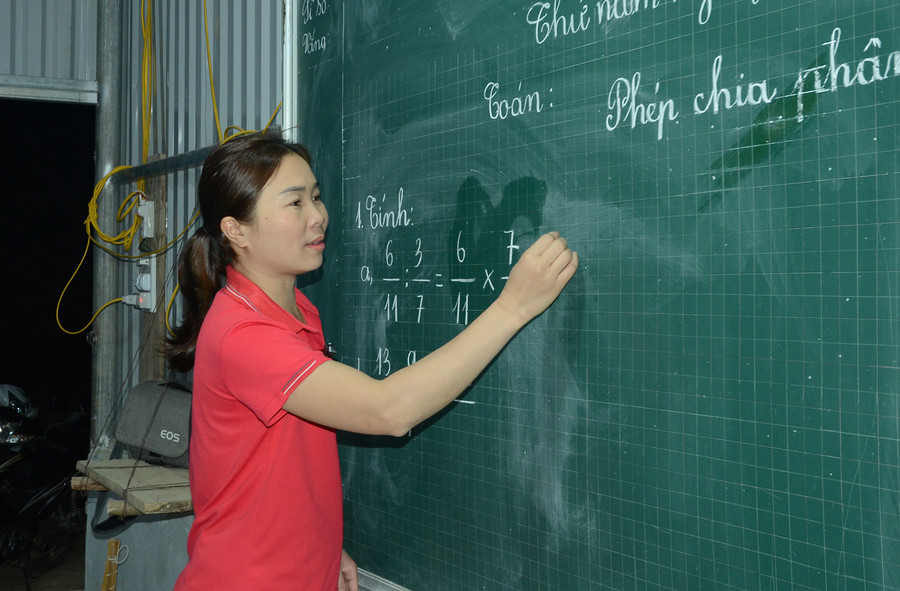 Sĩ số
Vắng:
Thứ năm
Toán: Phép chia phân
1. Tính:
a, 6/11 : 3/7 = 6/11 × 7
13 9
EOS